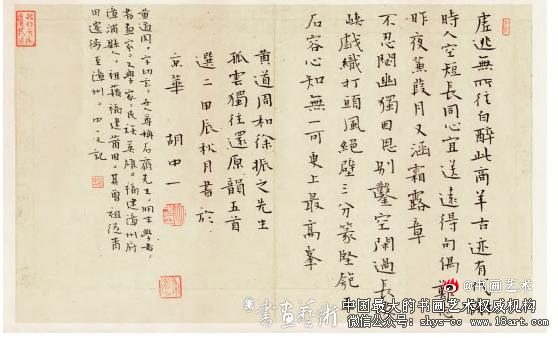 虚逃無所往白醉此商羊古迹有
時人空短長同心宜送遠得句偶難
昨夜蕉葭月又涵霜露章
不忍問幽獨回思別鑿空閑過長
峽戲織打頭風絕壁三分篆堅
石容心知無一可更上最高峯
黄道周和徐振之先生
孤雲獨往還原韻五首
選二甲辰秋月書於
京華 胡中一
黄道周,字幼玄,又尊稱石齋先生,明末學者,
書畫家、文學家、民族英雄。福建漳州府
漳浦縣人,祖籍福建莆田,其曾祖從莆
田遷徙至漳州。中一又記
@书画艺术
書畫藝術
中国最大的书画艺术权威机构
微信公众号：shys-cc www.18art.com